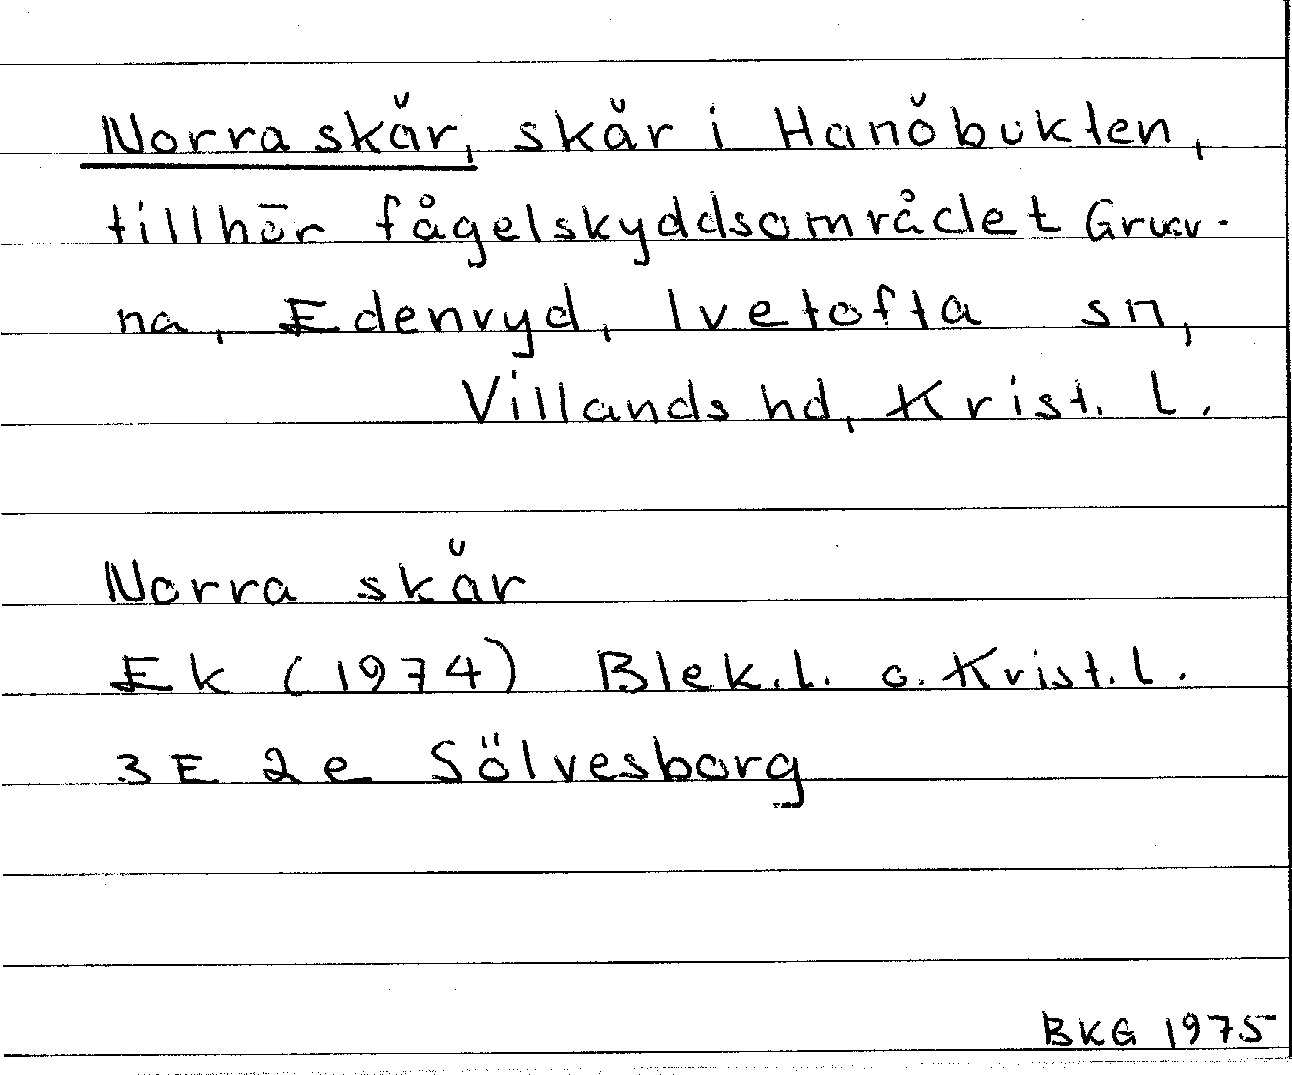 Norra skär, skär i Hanöbukten,
tillhör fågelskyddsområdet Gruar-
na, Edenryd, Ivetofta sn,
Villands hd, Krist. l.
Norra skär
Ek (1974) Blek.l. o. Krist.l.
3E 2e Sölvesborg
BKG 1975